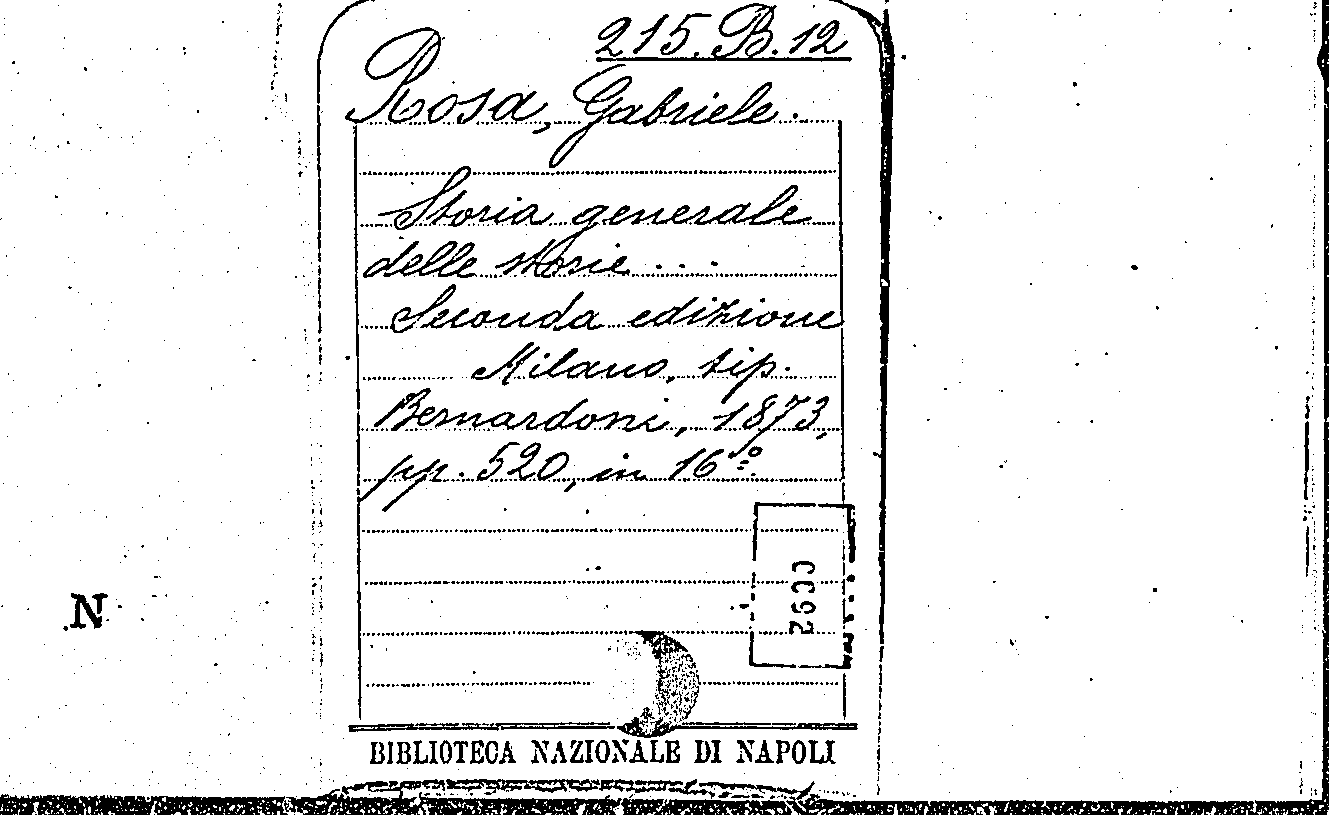 215.B.12
Rosa, Gabriele.
Storia generale
delle storie ...
Seconda edizione
Milano, tip.
Bernardoni, 1873,
pp. 520, in 16º.
N
BIBLIOTECA NAZIONALE DI NAPOLI